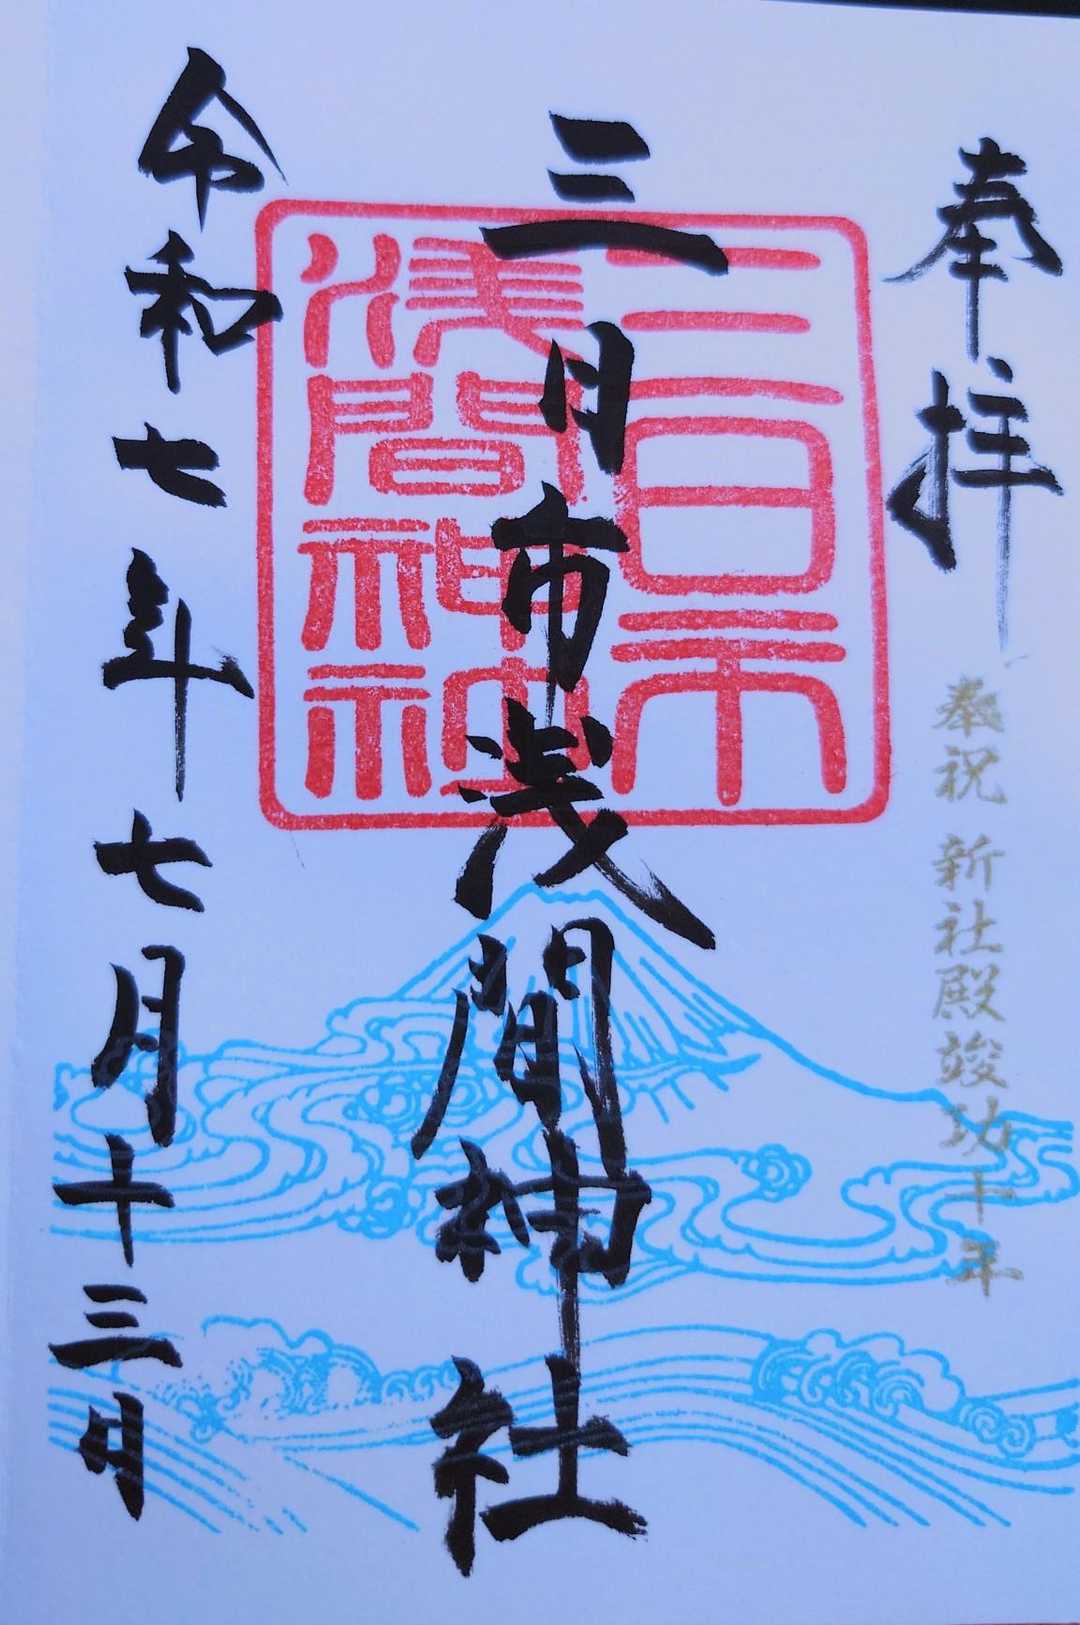 奉拝
奉祝 新社殿竣功十年
三日市浅間神社
三日市
浅間神社
令和七年七月十三日